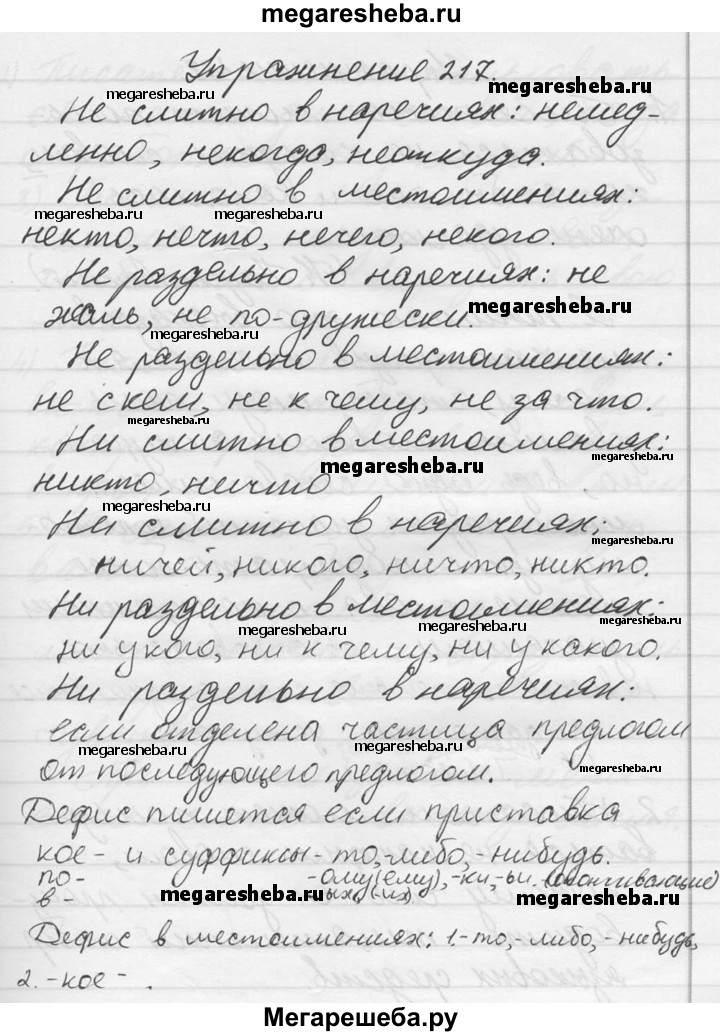 megaresheba.ru
Упражнение 217.
Не слитно в наречиях: немед-
megaresheba.ru
ленно, некогда, неоткуда.
Не слитно в местоимениях:
megaresheba.ru megaresheba.ru
некто, нечто, нечего, некого.
Не раздельно в наречиях: не
жаль, не по-дружески. megaresheba.ru
megaresheba.ru
Не раздельно в местоимениях:
не с кем, не к чему, не за что.
megaresheba.ru
Ни слитно в местоимениях:
megaresheba.ru megaresheba.ru
никто, ничто
Ни слитно в наречиях:
megaresheba.ru
ничей, никого, ничто, никто.
Ни раздельно в местоимениях:
megaresheba.ru megaresheba.ru
ни у кого, ни к чему, ни у какого.
Ни раздельно в наречиях:
если отделена частица предлогом
megaresheba.ru megaresheba.ru
от последующего предлогом.
megaresheba.ru
Дефис пишется если приставка
кое- и суффиксы -то, -либо, -нибудь.
по- -ому(ему), -ки, -ьи. (оканчивающие)
в- megaresheba.ru -ых, (-их) megaresheba.ru
Дефис в местоимениях: 1.-то, -либо, -нибудь,
2. -кое- .
Мегарешеба.ру